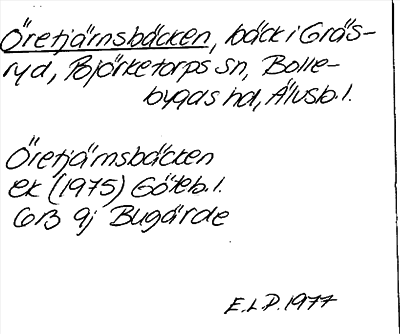 Öretjärnsbäcken, bäck i Gräs-
ryd, Björketorps sn, Bolle-
bygds hd, Älvsb.l.
Öretjärnsbäcken
ek (1975) Göteb.l.
6B 9j Bugärde
E.L.P. 1977